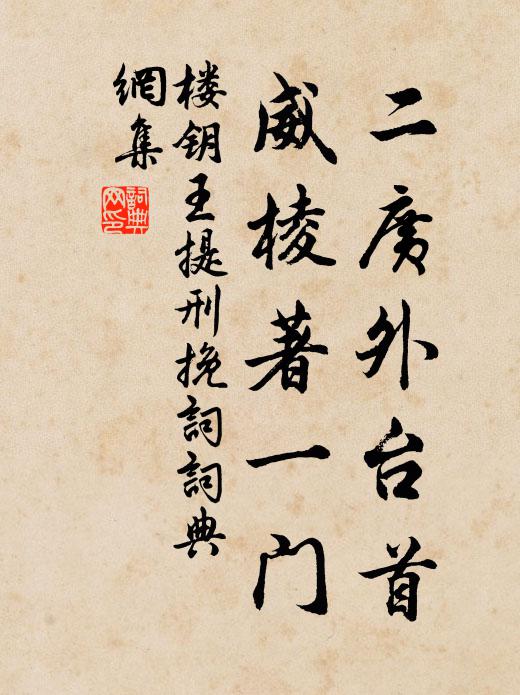 二广外台首
威棱著一门
楼钥王提刑挽词詞典
網集
詞典
网印